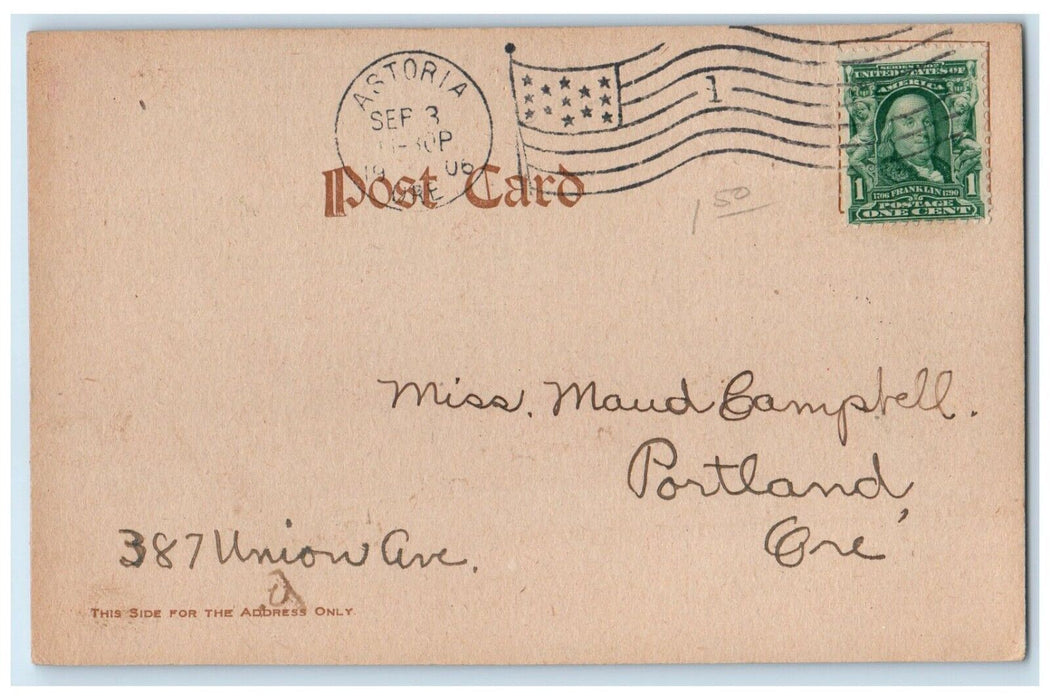 ASTORIA
SEP 3
-30P
19 06
ORE
1
SERIES 1902
UNITED STATES OF
AMERICA
1 1
1706 FRANKLIN 1790
POSTAGE
ONE CENT
Post Card
1 50
Miss. Maud Campbell.
Portland,
Ore
387 Union Ave.
THIS SIDE FOR THE ADDRESS ONLY.